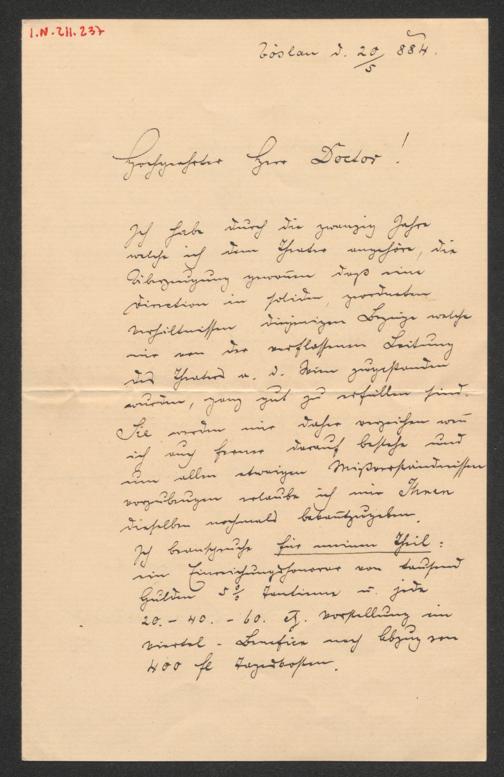 I.N. 211.237
Vöslau d. 20/5 884.
Hochgeehrter Herr Doctor!
Ich habe durch die zwanzig Jahre
welche ich dem Theater angehöre, die
Überzeugung gewonnen daß eine
Direction in soliden, geordneten
Verhältnissen diejenigen Bezüge welche
mir von der verflossenen Leitung
des Theaters a. d. Wien zugestanden
wurden, ganz gut zu erfüllen sind.
Sie werden mir daher verzeihen wen̄
ich auch ferner darauf bestehe und
um allen etwaigen Mißverständnissen
vorzubeugen erlaube ich mir Ihnen
dieselben nochmals bekan̄tzugeben.
Ich beanspruche für meinen Theil:
ein Einreichungshonorar von tausend
Gulden 5% Tantieme u. jede
20. - 40. - 60. Vorstellung ein
viertel - Benefice nach Abzug von
400 fl Tageskosten.